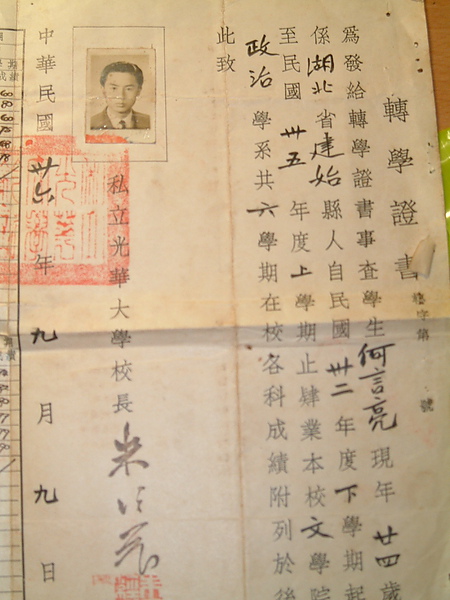 轉學證書
字第 號
為發給轉學證書事查學生何言亮現年廿四歲
係湖北省建始縣人自民國卅二年度下學期起
至民國卅五年度上學期止肆業本校文學院
政治學系共六學期在校各科成績附列於後
此致
私立光華大學校長
中華民國卅六年九月九日